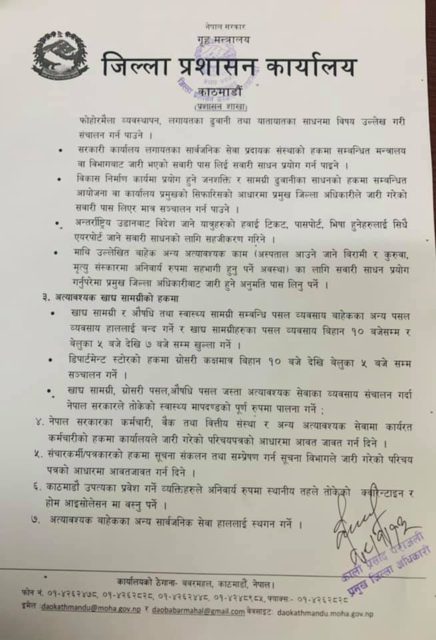 नेपाल सरकार
गृह मन्त्रालय
जिल्ला प्रशासन कार्यालय
काठमाडौं
(प्रशासन शाखा)
फोहोरमैला व्यवस्थापन, लगायतका ढुवानी तथा यातायातका साधनमा विषय उल्लेख गरी
संचालन गर्न पाउने ।
• सरकारी कार्यालय लगायतका सार्वजनिक सेवा प्रदायक संस्थाको हकमा सम्बन्धित मन्त्रालय
वा विभागबाट जारी भएको सवारी पास लिई सवारी साधन प्रयोग गर्न पाइने ।
• विकास निर्माण कार्यमा प्रयोग हुने जनशक्ति र सामाग्री ढुवानी साधनको हकमा सम्बन्धित
आयोजना वा कार्यालय प्रमुखको सिफारिसको आधारमा प्रमुख जिल्ला अधिकारीले जारी गरेको
सवारी पास लिएर मात्र सञ्चालन गर्न पाउने ।
• अन्तर्राष्ट्रिय उडानबाट विदेश जाने यात्रुहरुको हवाई टिकट, पासपोर्ट, भिषा हुनेहरुलाई सिधै
एयरपोर्ट जाने सवारी साधनको लागि सहजीकरण गरिने ।
• माथि उल्लेखित बाहेक अन्य अत्यावश्यक काम (अस्पताल आउने जाने बिरामी र कुरुवा,
मृत्यु संस्कारमा अनिवार्य रुपमा सहभागी हुनु पर्ने अवस्था) का लागि सवारी साधन प्रयोग
गर्नुपरेमा प्रमुख जिल्ला अधिकारीबाट जारी हुने अनुमति पास लिनु पर्ने ।
३. अत्यावश्यक खाद्य सामाग्रीको हकमा
• खाद्य सामग्री र औषधि तथा स्वास्थ्य सामग्री सम्बन्धि पसल व्यवसाय बाहेकका अन्य पसल
व्यवसाय हाललाई बन्द गर्ने । खाद्य सामग्रीहरुका पसल व्यवसाय बिहान १० बजेसम्म र
बेलुका ५ देखि ७ बजे सम्म खुल्ला गर्ने ।
• डिपार्टमेन्ट स्टोरको हकमा ग्रोसरी कक्षमात्र बिहान १० बजे देखि बेलुका ५ बजे सम्म
सञ्चालन गर्ने ।
• खाद्य सामाग्री, ग्रोसरी पसल,औषधि पसल जस्ता अत्यावश्यक सेवाका व्यवसाय संचालन गर्दा
नेपाल सरकारले तोकेको स्वास्थ्य मापदण्डको पूर्ण रुपमा पालना गर्ने ;
४. नेपाल सरकारका कर्मचारी, बैंक तथा वित्तीय संस्था र अन्य अत्यावश्यक सेवामा कार्यरत
कर्मचारीको हकमा कार्यालयले जारी गरेको परिचयपत्रको आधारमा आवत जावत गर्न दिने ।
५. संचारकर्मी/पत्रकारको हकमा सूचना संकलन तथा सम्प्रेषण गर्न सूचना विभागले जारी गरेको परिचय
पत्रको आधारमा आवतजावत गर्न दिने ।
६. काठमाडौं उपत्यका प्रवेश गर्ने व्यक्तिहरुले अनिवार्य रुपमा स्थानीय तहले तोकेको क्वारेन्टाइन र
होम आइसोलेसन मा वस्नु पर्ने ।
७. अत्यावश्यक बाहेकका अन्य सार्वजनिक सेवा हाललाई स्थगन गर्ने ।
काली प्रसाद पराजुली
प्रमुख जिल्ला अधिकारी
कार्यालयको ठेगाना- बबरमहल, काठमाडौं, नेपाल।
फोन नं. ०१-४२६२५७८, ०१-४२६२८२८, ०१-४२६२५४८, ०१-४२४८९८५, फ्याक्स:- ०१-४२६२८२८
इमेल :daokathmandu@moha.gov.np र daobabarmahal@gmail.com वेबसाइट: daokathmandu.moha.gov.np